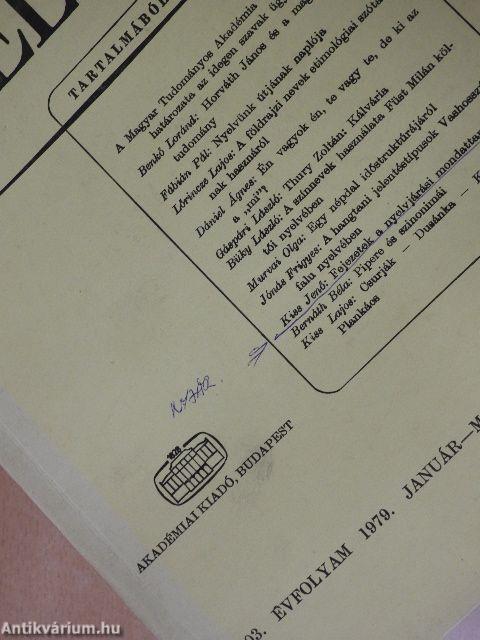 TARTALMÁBÓL
A Magyar Tudományos Akadémia
határozata az idegen szavak
Benkő Loránd: Horváth János és a
tudomány
Fábián Pál: Nyelvünk útjának naplója
Lőrincze Lajos: A földrajzi nevek etimológiai
nak hasznáról
Dániel Ágnes: Én vagyok én, te vagy te, de ki az
a „mi"
Gáspári László: Thury Zoltán: Kálvária
Büky László: A színnevek használata Füst Milán köl-
tői nyelvében
Murvai Olga: Egy népdal időstruktúrájáról
Jónás Frigyes: A hangtani jelentéstípusok Vashossz
falu nyelvében
Kiss Jenő: Fejezetek a nyelvjárási mondattan
Bernáth Béla: Pipere és szinonimái
Kiss Lajos: Csurják — Dusánka — K
Plankáos
1828
AKADÉMIAI KIADÓ, BUDAPEST
03. ÉVFOLYAM 1979. JANUÁR—M
Antikvárium.hu